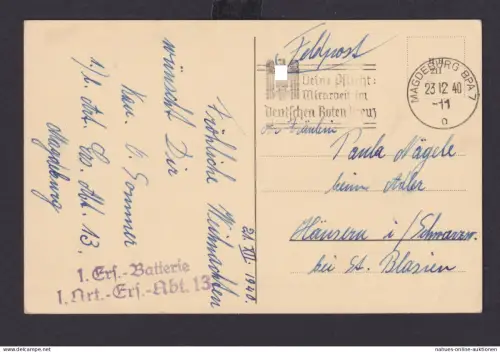 Fröhliche Weihnachten
wünscht Dir
Kan. O. Sommer
1./l. Art. Ers. Abt. 13.
Magdeburg
21. XII. 1940.
1. Ers.-Batterie
1. Art.-Ers.-Abt. 13
Feldpost
Deine Pflicht:
Mitarbeit im
Deutschen Roten Kreuz
MAGDEBURG BPA 7
23.12.40
-11
a
Fräulein
Paula Nägele
beim Adler
Häusern i/Schwarzw.
bei St. Blasien
www.ansichtskarten-center.de - www.nations-auktionen.com